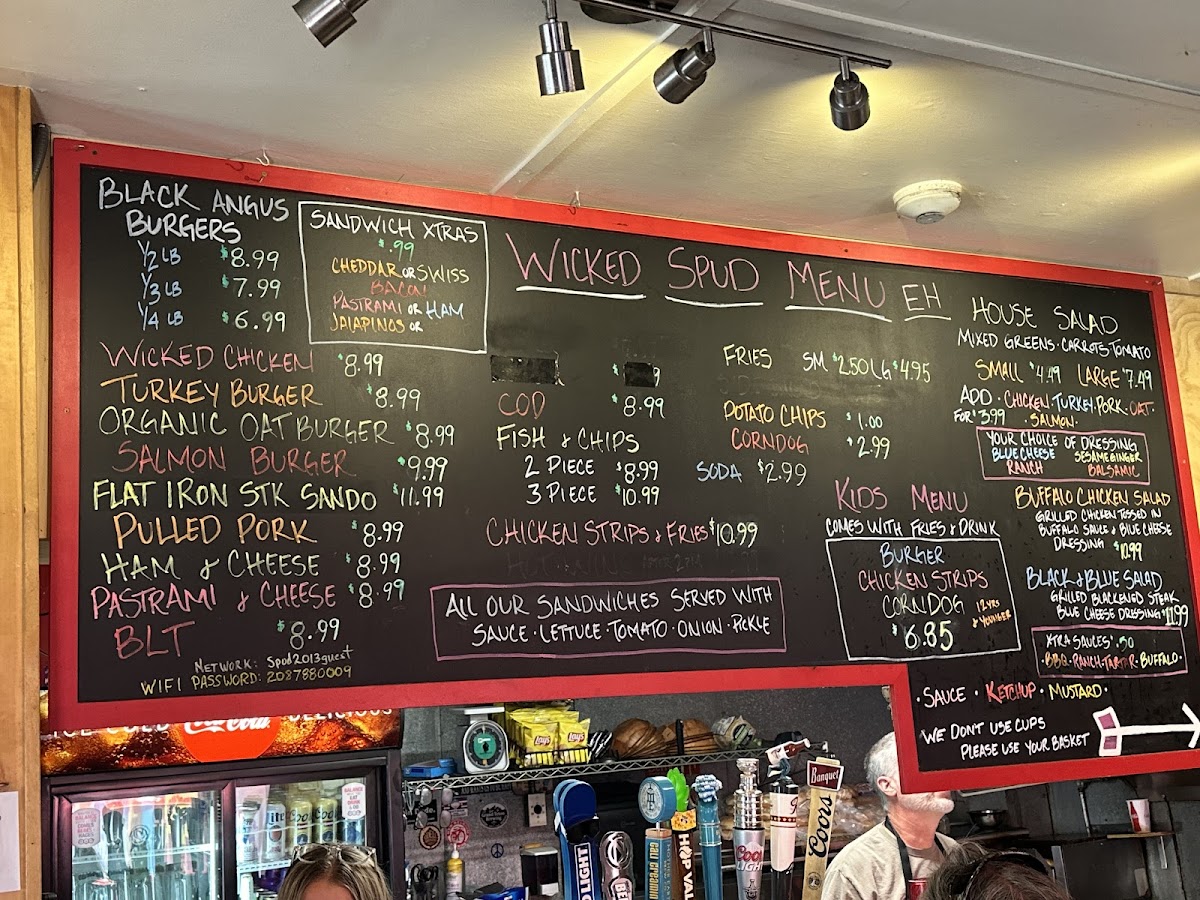 BLACK ANGUS
BURGERS
1/2 LB $8.99
1/3 LB $7.99
1/4 LB $6.99
SANDWICH XTRAS
$.99
CHEDDAR OR SWISS
BACON
PASTRAMI OR HAM
JALAPINOS OR
WICKED CHICKEN $8.99
TURKEY BURGER $8.99
ORGANIC OAT BURGER $8.99
SALMON BURGER $9.99
FLAT IRON STK SANDO $11.99
PULLED PORK $8.99
HAM & CHEESE $8.99
PASTRAMI & CHEESE $8.99
BLT $8.99
NETWORK: Spud2013guest
WIFI PASSWORD: 2087880009
WICKED SPUD MENU EH
$ 9
COD $8.99
FISH & CHIPS
2 PIECE $8.99
3 PIECE $10.99
CHICKEN STRIPS & FRIES $10.99
ALL OUR SANDWICHES SERVED WITH
SAUCE · LETTUCE · TOMATO · ONION · PICKLE
FRIES SM $2.50 LG $4.95
POTATO CHIPS $1.00
CORNDOG $2.99
SODA $2.99
KIDS MENU
COMES WITH FRIES & DRINK
BURGER
CHICKEN STRIPS
CORNDOG
12 YRS
& YOUNGER
$6.85
HOUSE SALAD
MIXED GREENS · CARROTS TOMATO
SMALL $4.49 LARGE $7.49
ADD · CHICKEN · TURKEY · PORK · OAT ·
FOR $3.99 SALMON ·
YOUR CHOICE OF DRESSING
BLUE CHEESE SESAME GINGER
RANCH BALSAMIC
BUFFALO CHICKEN SALAD
GRILLED CHICKEN TOSSED IN
BUFFALO SAUCE & BLUE CHEESE
DRESSING $10.99
BLACK & BLUE SALAD
GRILLED BLACKENED STEAK
BLUE CHEESE DRESSING $11.99
XTRA SAUCES $.50
· BBQ · RANCH · TARTER · BUFFALO ·
· SAUCE · KETCHUP · MUSTARD ·
WE DON'T USE CUPS
PLEASE USE YOUR BASKET
ICE COLD Coca-Cola DELICIOUS
Lay's
Lay's
Banquet
Coors
COORS LIGHT
HOP VALLEY
D LIGHT